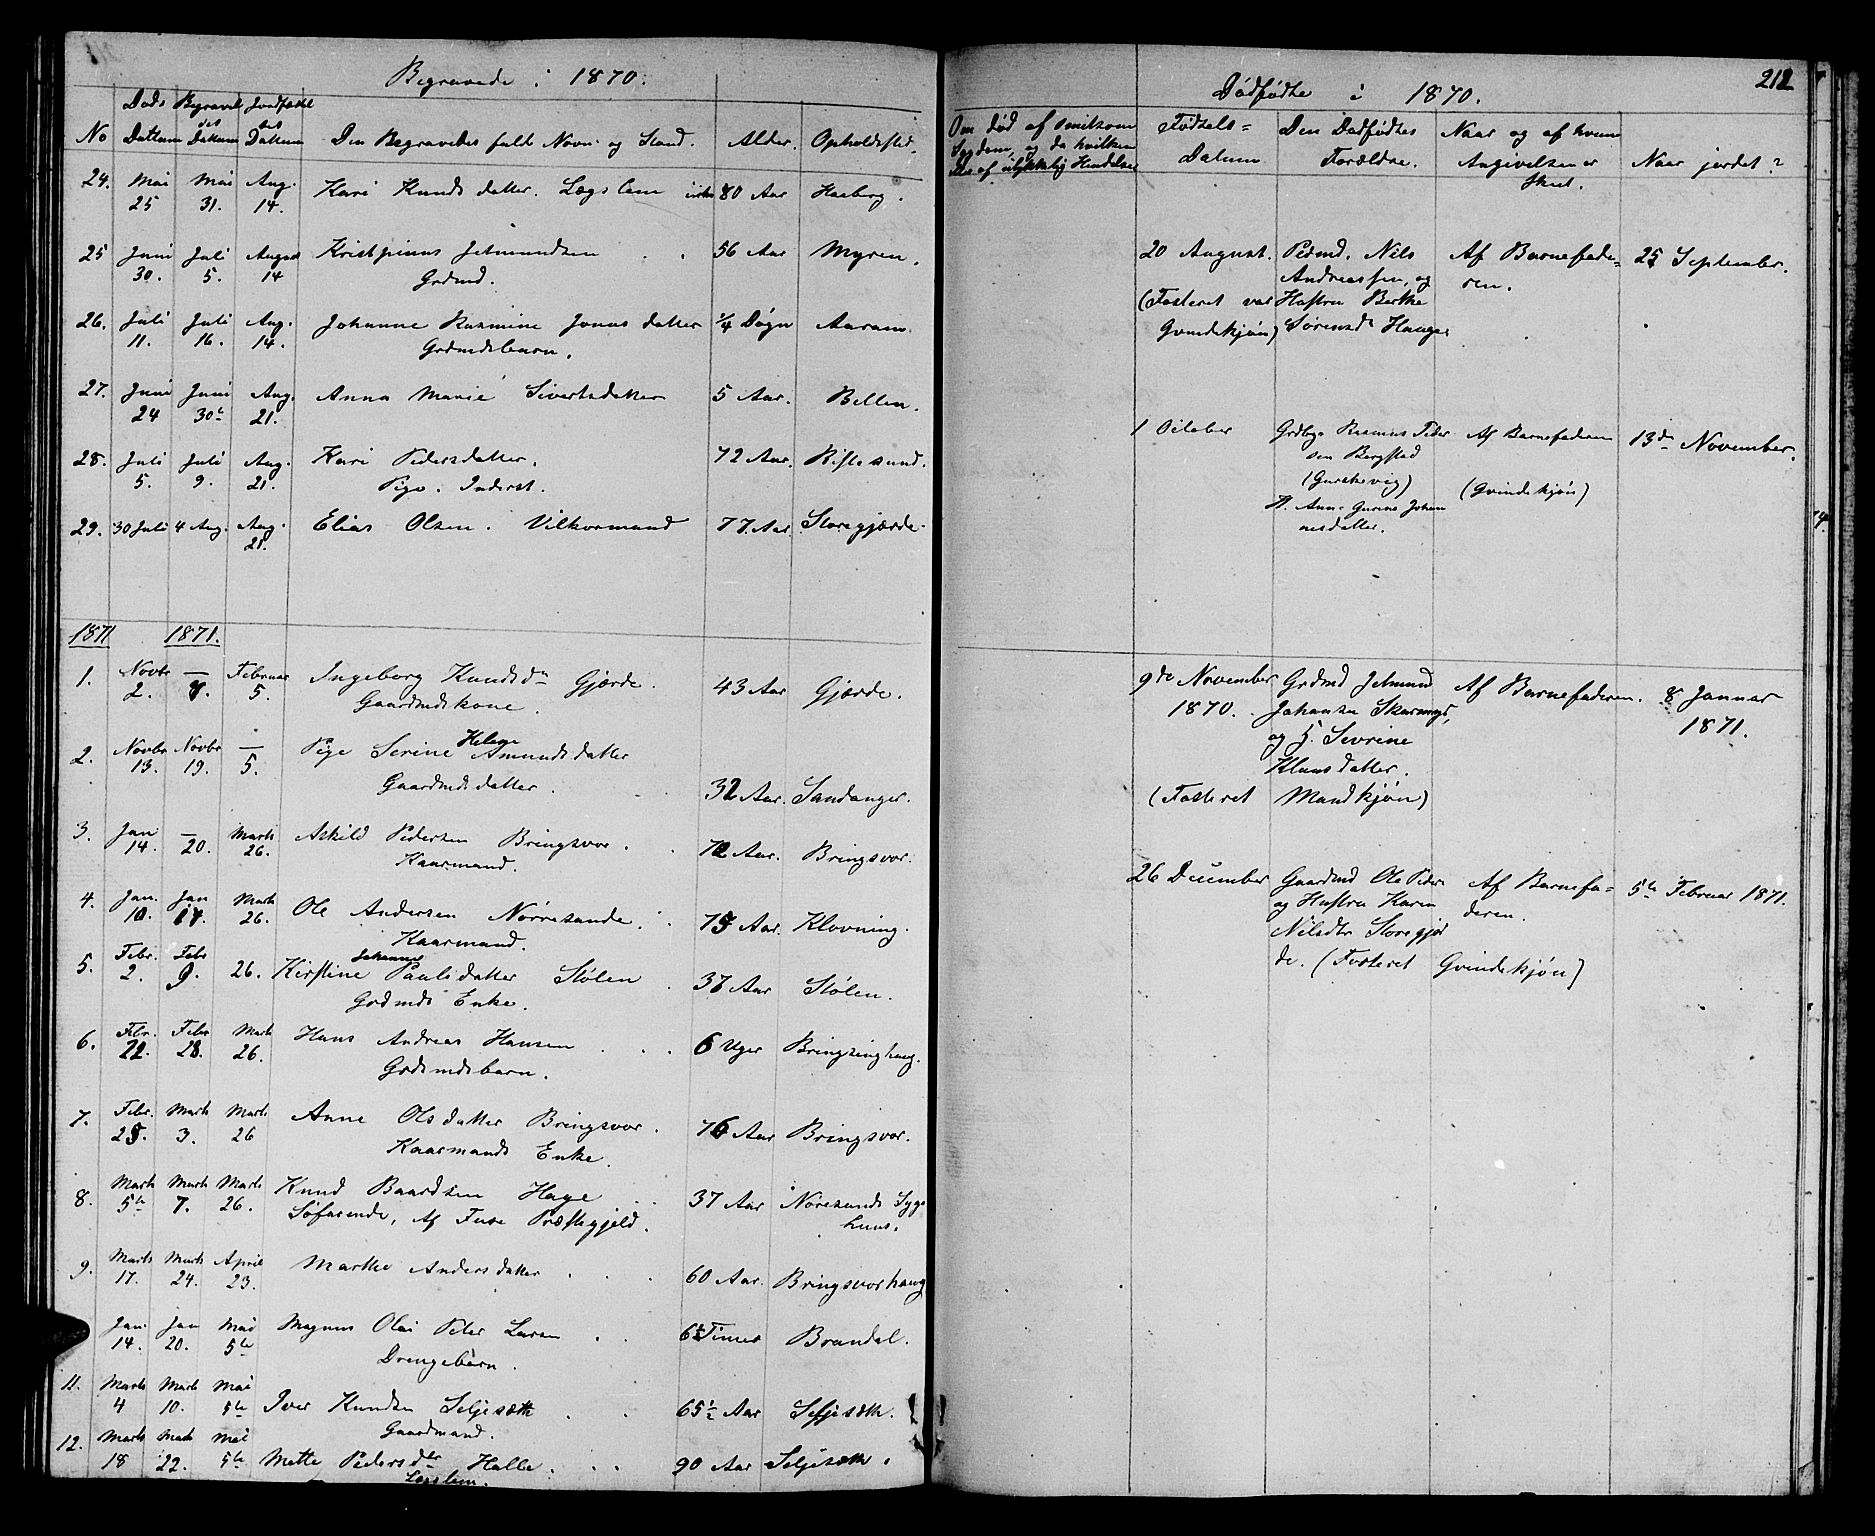 Begravede i 1870.
No
Døds Dattum
Begravel des Datum
Jordfæstel des Dattum
Den Begravedes fulde Navn og Stand.
Alder.
Opholdssted.
24. Mai 25 Mai 31. Aug. 14. Kari Knudsdatter. Lægslem 80 Aar Haaberg.
25 Juni 30. Juli 5. August 14 Kristpinus Jetmundsen 56 Aar Myren.
Grdmd.
26. Juli 11. Juli 16. Aug. 14. Johanne Rasmine Jonasdatter 1/4 Døgn Aaram.
Grdmdsbarn.
27. Juni 24 Juni 30te Aug. 21. Anna Marie Sivertsdatter 5 Aar. Betten.
28. Juli 5. Juli 9. Aug. 21. Kari Pedersdatter. 72 Aar. Riftesund.
Pige. Inderst.
29. 30 Juli 4 Aug. Aug. 21. Elias Olsen. Vilkormand 77 Aar. Storegjærde.
1871 1871.
1. Novbr 2. — 8. Februar 5. Ingeborg Knudsdr Gjærde. 43 Aar Gjærde.
Gaardmdskone.
2. Novbr 13. Novbr 19. — 5. Pige Serine Helene Amundsdatter
Gaardmdsdatter. 32 Aar. Sandanger.
3. Jan 14. — 20. Marts 26. Askild Pedersen Bringsvor. 72 Aar. Bringsvor.
Kaarmand.
4. Jan. 10. Jan 17. Marts 26. Ole Andersen Nørresande. 75 Aar. Klovning.
Kaarmand.
5. Febr. 2. Febr 9. 26. Kirstine Johanne Paulsdatter Stølen 37 Aar Stølen.
Grdmds Enke.
6. Febr. 22. Febr 28. Marts 26. Hans Andreas Hansen 6 Uger Bringsinghaug.
Grdmdsbarn.
7. Febr. 25. Marts 3. Marts 26 Anne Olsdatter Bringsvor. 76 Aar Bringsvor.
Kaarmands Enke.
8. Marts 5te Marts 7. Marts 26. Knud Baardsen Hage 37 Aar Nøresunds Syge
Søfarende, Af Fuse Præstegjeld. huus.
9. Marts 17. Marts 24. April 23. Marthe Andersdatter 60 Aar. Bringsvorhaug
Jan. 14. Jan 20. Mai 5te Magnus Olai Peter Larsen Timer Brandal.
Drengebarn.
11. Marts 4 Marts 10. Mai 5te Iver Knudsen Seljesæth 65 1/2 Aar Seljesæth.
Gaardmand.
12. Marts 18 Marts 22. Mai 5te Mette Pedersdtr Halle. 90 Aar Seljesæth.
Lægslem.
212
Dødfødte i 1870.
Om død af smitsom
Sygdom, og da hvilken
eller af ulykkelig Hændelse
Fødsels-
Datum
Den Dødfødtes
Forældre.
Naar og af hvem
Angivelsen er
skeet.
Naar jordet?
20 August. Pdmd. Nils Af Barnefade- 25 September.
Andreassen, og ren.
(Fosteret var Hustru Berthe
Qvindekjøn) Sørensdr Hauge
1 October Grdbgr Rasmus Peder Af Barnefaderen 13de November.
sen Bergstad
(Gurskevig) (Qvindekjøn)
H. Anne Gurine Johan
nesdatter.
9de November Grdmd Jetmund Af Barnefaderen. 8 Januar
1870. Johansen 1871.
og H. Sevrine
Klausdatter.
(Fosteret Mandkjøn)
26 December Gaardmd Ole Peder Af Barnefa- 5te Februar 1871.
og Hustru Karen deren.
Nilsdtr Storegjær
de. (Fosteret Qvindekjøn)